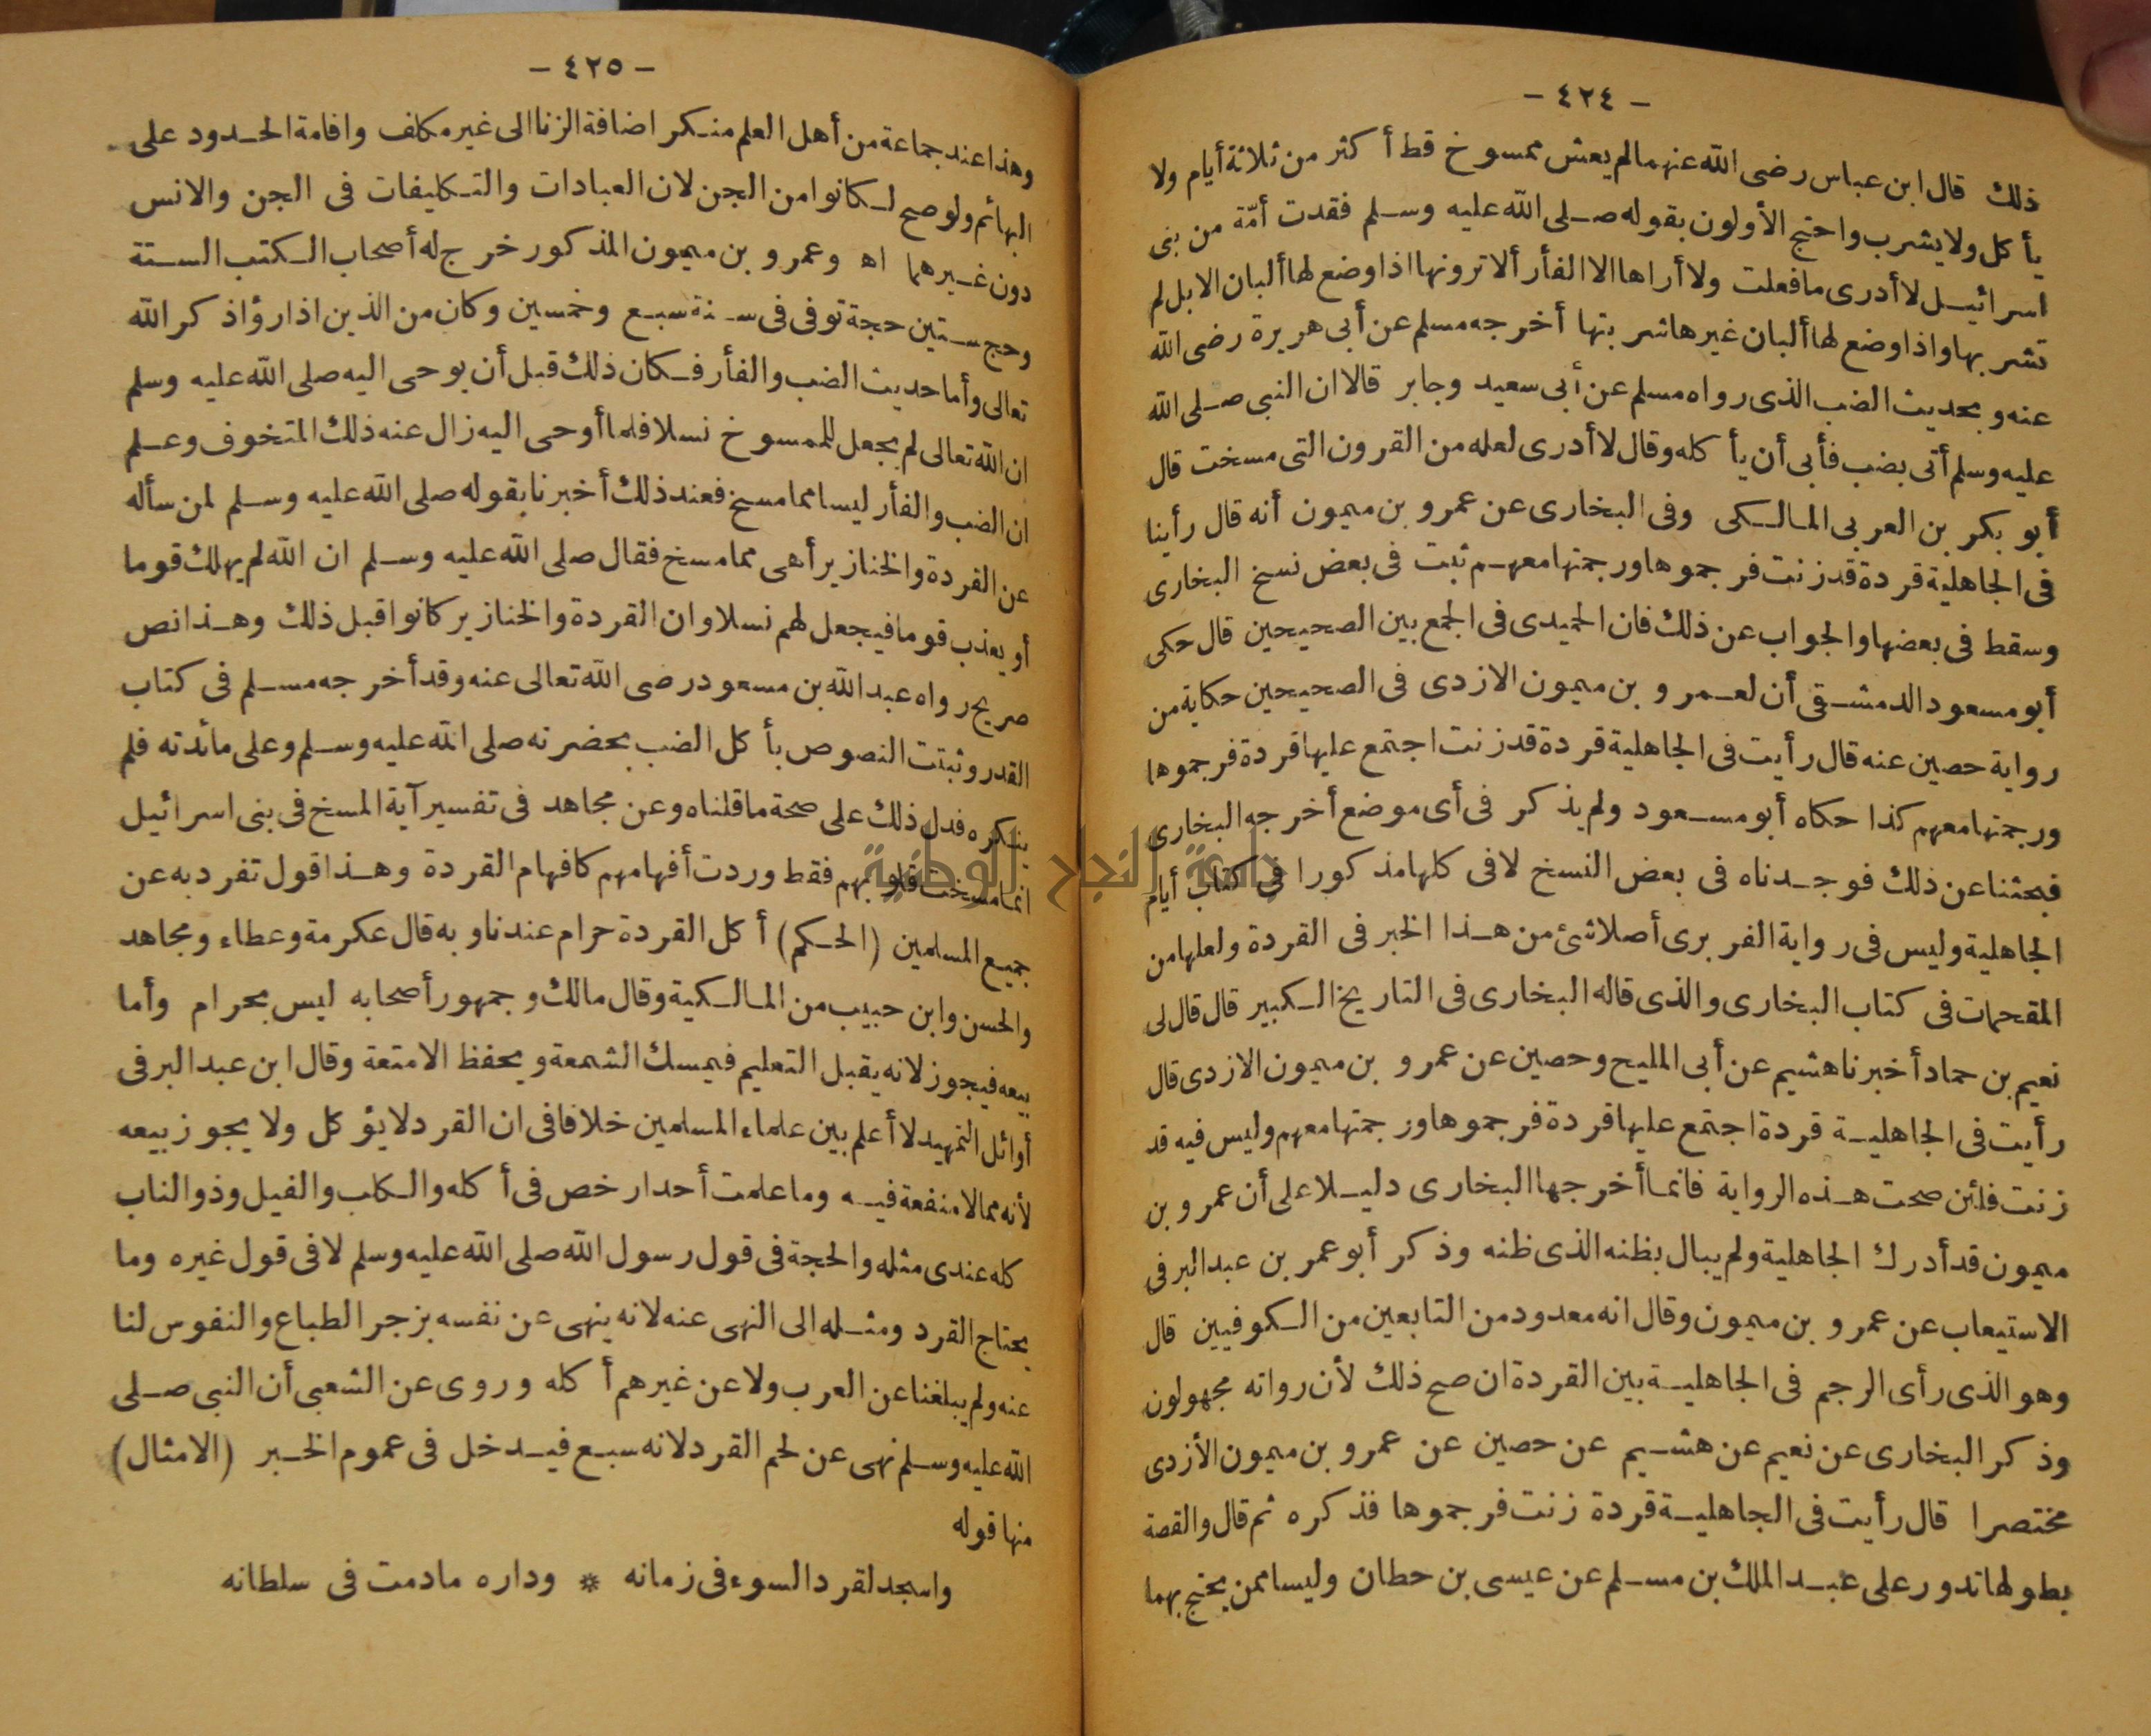 - ٤٢٤ -
ذلك قال ابن عباس رضى الله عنهما لم يعش ممسوخ قط أكثر من ثلاثة أيام ولا
يأكل ولا يشرب واحتج الأولون بقوله صلى الله عليه وسلم فقدت أمّة من بنى
اسرائيل لا أدرى ما فعلت ولا أراها الا الفأر ألا ترونها اذا وضع لها ألبان الابل لم
تشربها واذا وضع لها ألبان غيرها شربتها أخرجه مسلم عن أبى هريرة رضى الله
عنه وبحديث الضب الذى رواه مسلم عن أبى سعيد وجابر قالا ان النبى صلى الله
عليه وسلم أتى بضب فأبى أن يأكله وقال لا أدرى لعله من القرون التى مسخت قال
أبو بكر بن العربى المالكى وفى البخارى عن عمرو بن ميمون أنه قال رأينا
فى الجاهلية قردة قد زنت فرجموها ورجمتها معهم ثبت فى بعض نسخ البخارى
وسقط فى بعضها والجواب عن ذلك فان الحميدى فى الجمع بين الصحيحين قال حكى
أبو مسعود الدمشقى أن لعمرو بن ميمون الازدى فى الصحيحين حكاية من
رواية حصين عنه قال رأيت فى الجاهلية قردة قد زنت اجتمع عليها قردة فرجموها
ورجمتها معهم كذا حكاه أبو مسعود ولم يذكر فى أى موضع أخرجه البخارى
فبحثنا عن ذلك فوجدناه فى بعض النسخ لا فى كلها مذكورا فى كتاب أيام
الجاهلية وليس فى رواية الفربرى أصلا شئ من هذا الخبر فى القردة ولعلها من
المقحمات فى كتاب البخارى والذى قاله البخارى فى التاريخ الكبير قال قال لى
نعيم بن حماد أخبرنا هشيم عن أبى المليح وحصين عن عمرو بن ميمون الازدى قال
رأيت فى الجاهلية قردة اجتمع عليها قردة فرجموها ورجمتها معهم وليس فيه قد
زنت فلئن صحت هذه الرواية فانما أخرجها البخارى دليلا على أن عمرو بن
ميمون قد أدرك الجاهلية ولم يبال بظنه الذى ظنه وذكر أبو عمر بن عبد البر فى
الاستيعاب عن عمرو بن ميمون وقال انه معدود من التابعين من الكوفيين قال
وهو الذى رأى الرجم فى الجاهلية بين القردة ان صح ذلك لأن رواته مجهولون
وذكر البخارى عن نعيم عن هشيم عن حصين عن عمرو بن ميمون الأزدى
مختصرا قال رأيت فى الجاهلية قردة زنت فرجموها فذكره ثم قال والقصة
بطولها تدور على عبد الملك بن مسلم عن عيسى بن حطان وليسا ممن يحتج بهما
- ٤٢٥ -
وهذا عند جماعة من أهل العلم منكر اضافة الزنا الى غير مكلف واقامة الحدود على
البهائم ولو صح لكانوا من الجن لان العبادات والتكليفات فى الجن والانس
دون غيرهما اه وعمرو بن ميمون المذكور خرج له أصحاب الكتب الستة
وحج ستين حجة توفى فى سنة سبع وخمسين وكان من الذين اذا رؤا ذكر الله
تعالى وأما حديث الضب والفأر فكان ذلك قبل أن يوحى اليه صلى الله عليه وسلم
ان الله تعالى لم يجعل للممسوخ نسلا فلما أوحى اليه زال عنه ذلك المتخوف وعلم
ان الضب والفأر ليسا مما مسخ فعند ذلك أخبرنا بقوله صلى الله عليه وسلم لمن سأله
عن القردة والخنازير أهى مما مسخ فقال صلى الله عليه وسلم ان الله لم يهلك قوما
أو يعذب قوما فيجعل لهم نسلا وان القردة والخنازير كانوا قبل ذلك وهذا نص
صريح رواه عبد الله بن مسعود رضى الله تعالى عنه وقد أخرجه مسلم فى كتاب
القدر وثبتت النصوص بأكل الضب بحضرته صلى الله عليه وسلم وعلى مائدته فلم
ينكره فدل ذلك على صحة ما قلناه وعن مجاهد فى تفسير آية المسخ فى بنى اسرائيل
انما مسخت قلوبهم فقط وردت أفهامهم كافهام القردة وهذا قول تفرد به عن
جميع المسلمين (الحكم) أكل القردة حرام عندنا وبه قال عكرمة وعطاء ومجاهد
والحسن وابن حبيب من المالكية وقال مالك وجمهور أصحابه ليس بحرام وأما
بيعه فيجوز لانه يقبل التعليم فيمسك الشمعة ويحفظ الامتعة وقال ابن عبد البر فى
أوائل التمهيد لا أعلم بين علماء المسلمين خلافا فى ان القرد لا يؤكل ولا يجوز بيعه
لأنه مما لا منفعة فيه وما علمت أحدا رخص فى أكله والكلب والفيل وذو الناب
كله عندى مثله والحجة فى قول رسول الله صلى الله عليه وسلم لا فى قول غيره وما
يحتاج القرد ومثله الى النهى عنه لانه ينهى عن نفسه بزجر الطباع والنفوس لنا
عنه ولم يبلغنا عن العرب ولا عن غيرهم أكله وروى عن الشعبى أن النبى صلى
الله عليه وسلم نهى عن لحم القرد لانه سبع فيدخل فى عموم الخبر (الامثال)
منها قوله
واسجد لقرد السوء فى زمانه * وداره مادمت فى سلطانه
جامعة النجاح الوطنية